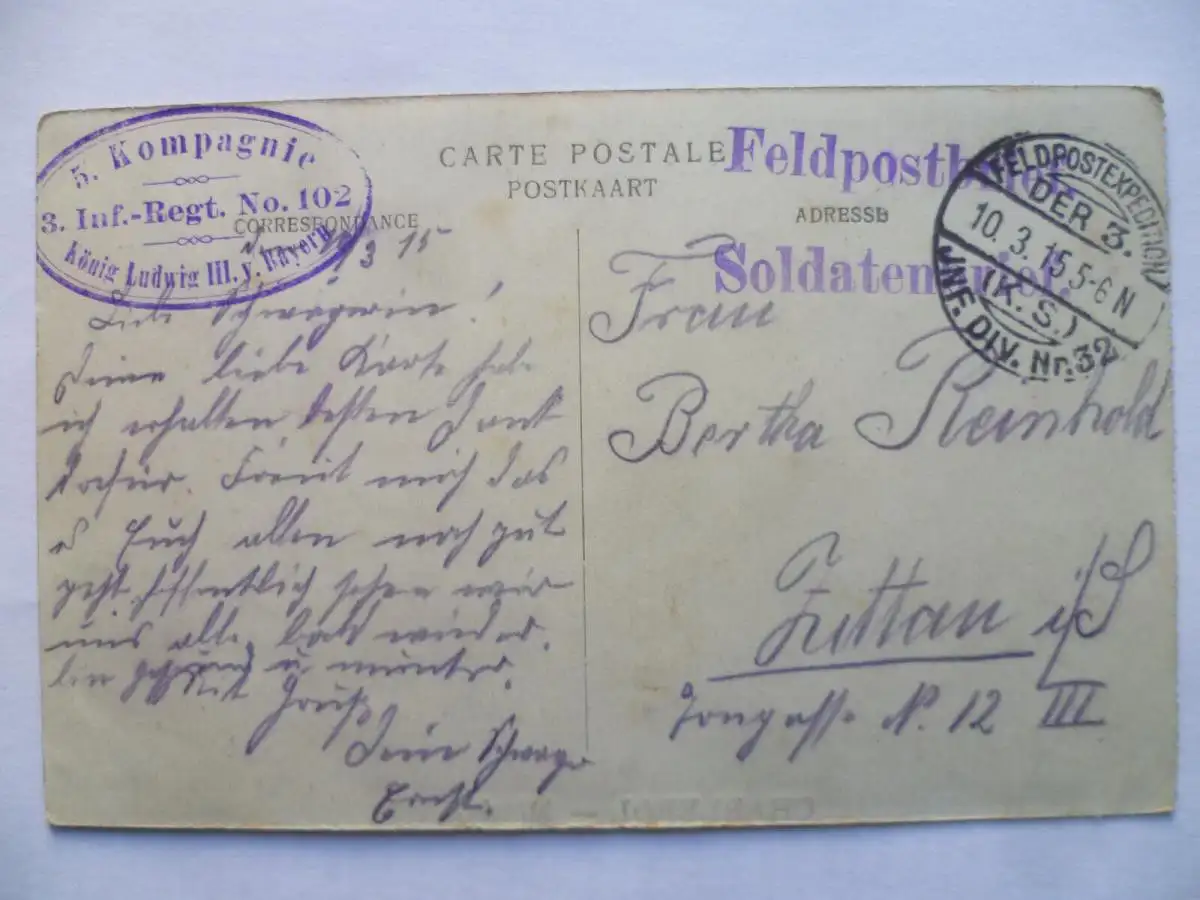 5. Kompagnie
3. Inf.-Regt. No. 102
König Ludwig III. v. Bayern
CARTE POSTALE
POSTKAART
CORRESPONDANCE
ADRESSE
Feldpostbrief.
Soldatenbrief.
FELDPOSTEXPEDITION
DER 3.
10. 3. 15 5-6 N
(K. S.)
JNF. DIV. Nr. 32
9 3 15
Liebe Schwägerin!
Deine liebe Karte habe
ich erhalten besten Dank
dafür. Freut mich das
es Euch allen noch gut
geht. Hoffentlich sehen wir
uns alle bald wieder.
bin gesund u. munter.
Mit Gruß
Dein Schwager
Ernst.
Frau
Bertha Reinhold
Zittau i/S
N. 12 III